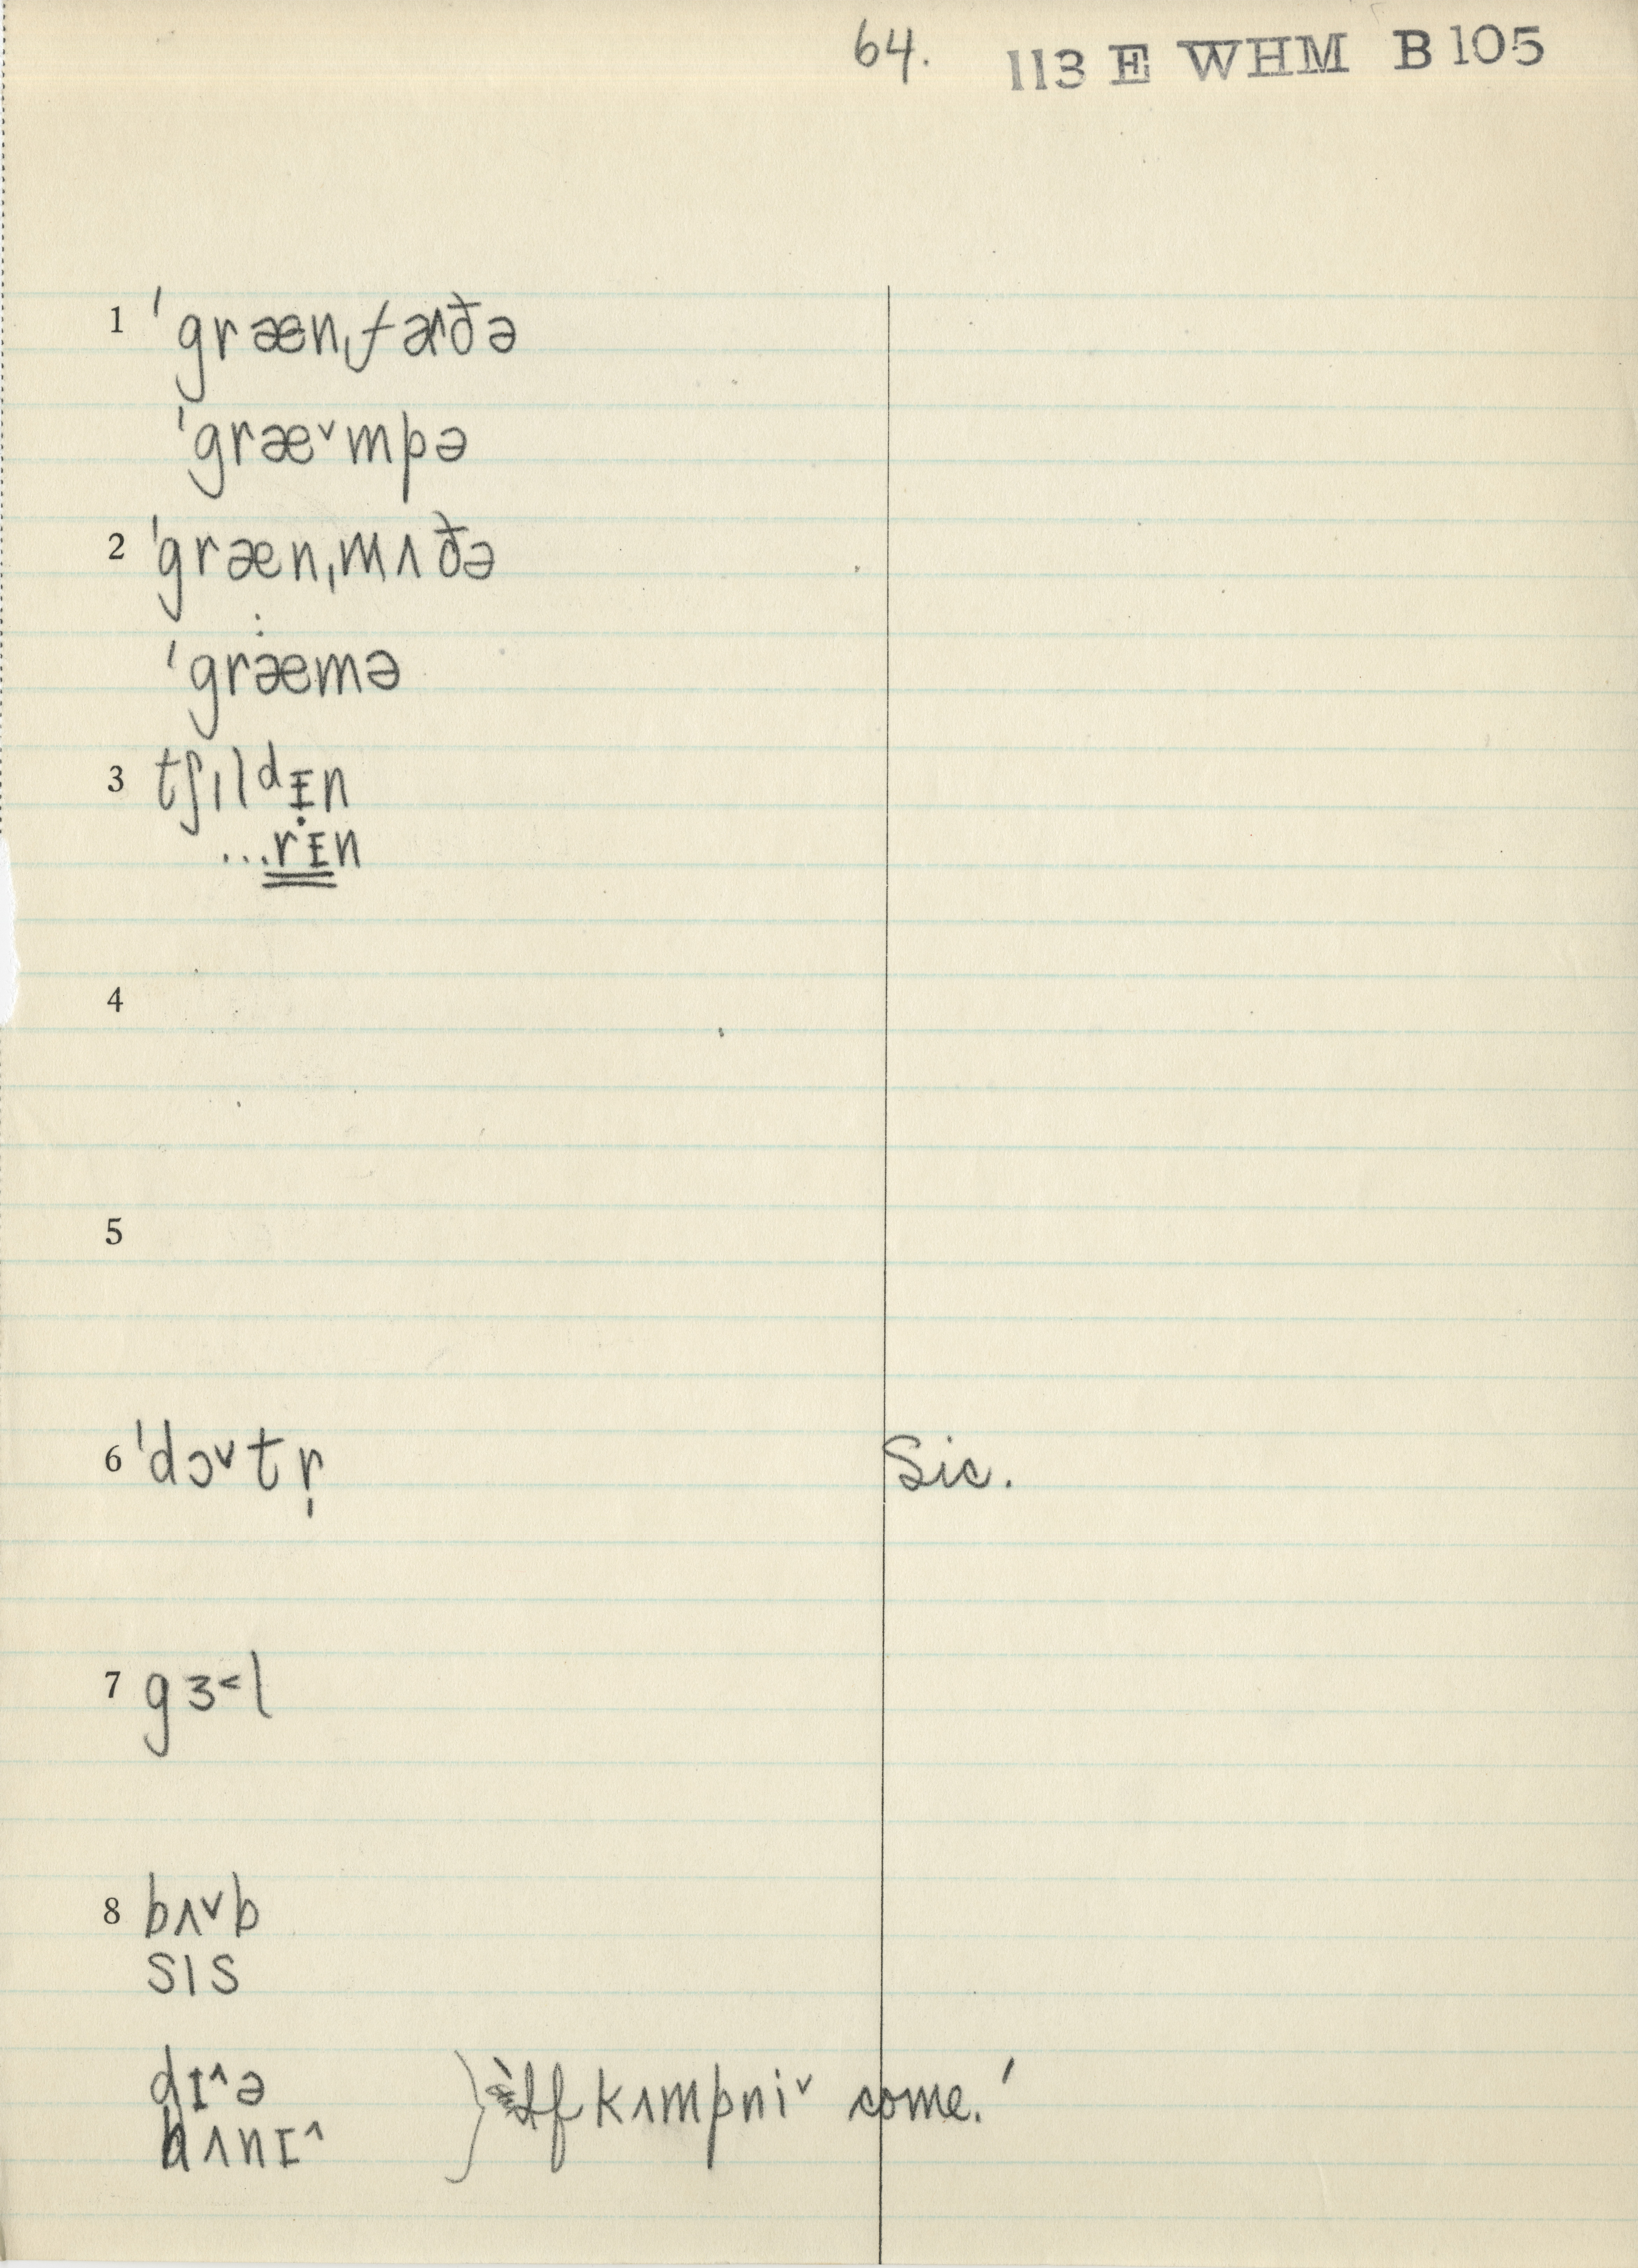 64. 113 E WHM B 105
1 ˈgrænˌfɑðə
ˈgræ˅mpə
2 ˈgrænˌmʌðə
:
ˈgræmə
3 tʃɪldᵻn
...rᵻn
4
5
6 ˈdɔ˅tr̩ Sic.
7 gɜ˂l
8 bʌ˅b
sɪs
dɪ˄ə
hʌnɪ˄ } 'If kʌmpni˅ come.'